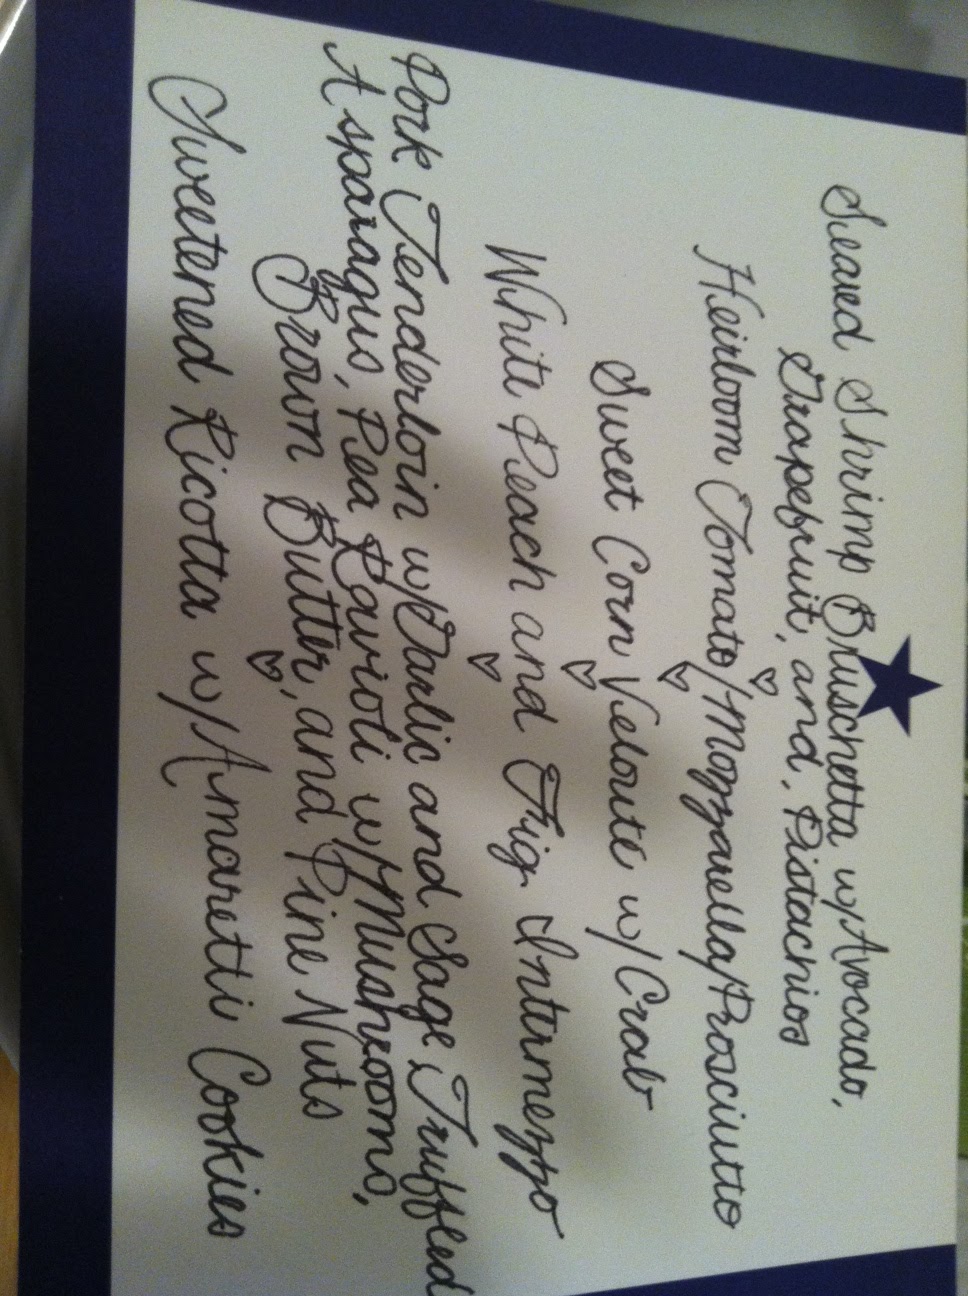 Seared Shrimp Bruschetta w/Avocado,
Grapefruit, and, Pistachios
Heirloom Tomato/Mozzarella/Prosciutto
Sweet Corn Veloute w/Crab
White Peach and Fig Intermezzo
Pork Tenderloin w/Garlic and Sage, Truffled
Asparagus, Pea Ravioli w/Mushrooms,
Brown Butter, and Pine Nuts
Sweetened Ricotta w/Amaretti Cookies